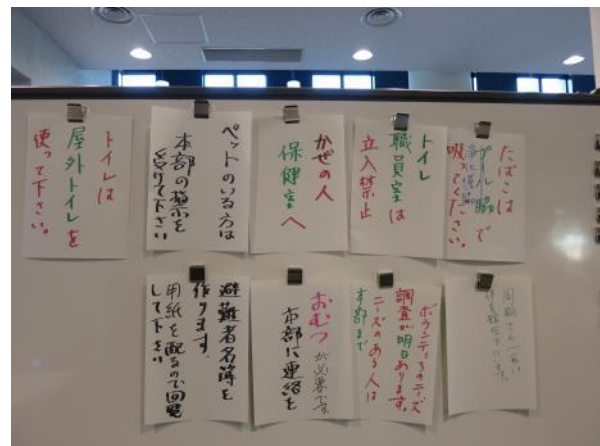 たばこは
プール脇で
吸ってください。
トイレ
職員室は
立入禁止
かぜの人
保健室へ
ペットのいる方は
本部の指示を
受けて下さい
トイレは
屋外トイレを
使って下さい。
ボランティアのニーズ
調査が明日あります。
ニーズのある人は
本部まで
おむつが必要です
本部に連絡を
避難者名簿を
作ります。
用紙を配るので回覧
して下さい